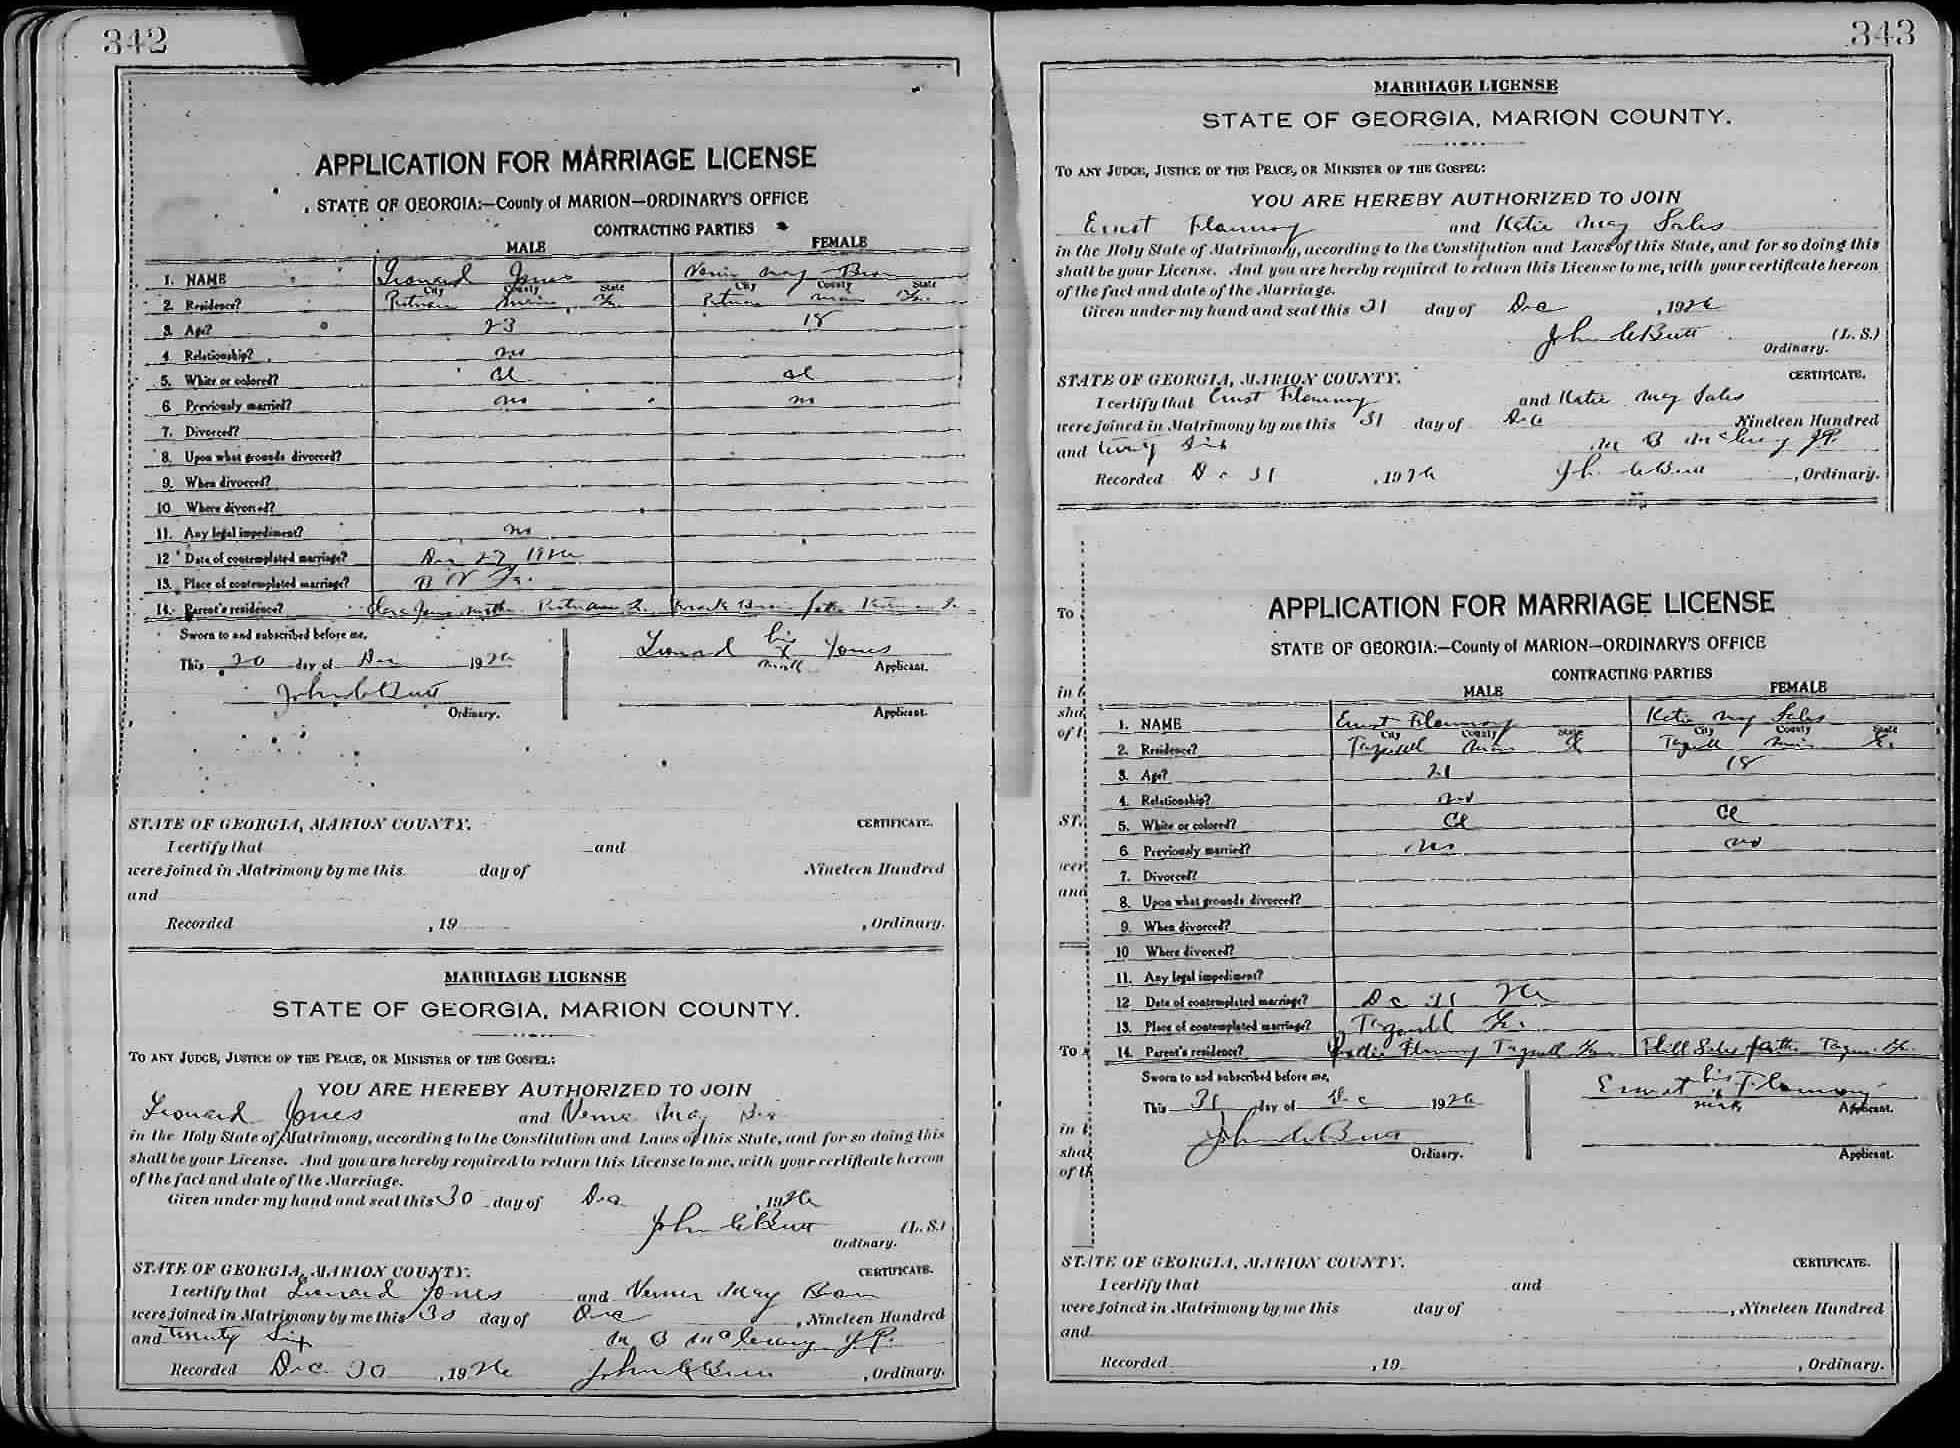 342
APPLICATION FOR MARRIAGE LICENSE
STATE OF GEORGIA:—County of MARION—ORDINARY'S OFFICE
CONTRACTING PARTIES
MALE FEMALE
1. NAME Leonard Jones May
City County State City County State
2. Residence? Putnam Ga. Ga.
3. Age? 23 18
4. Relationship? no
5. White or colored? Cl Cl
6. Previously married? no no
7. Divorced?
8. Upon what grounds divorced?
9. When divorced?
10 Where divorced?
11. Any legal impediment? no
12 Date of contemplated marriage? 1926
13. Place of contemplated marriage? Ga.
14. Parent's residence? Jones mother Putnam Ga.
Sworn to and subscribed before me,
This 30 day of Dec 1926
John C Butt
Ordinary.
Leonard his x mark Jones
Applicant.
Applicant.
STATE OF GEORGIA, MARION COUNTY. CERTIFICATE.
I certify that and
were joined in Matrimony by me this day of Nineteen Hundred
and
Recorded , 19 , Ordinary.
MARRIAGE LICENSE
STATE OF GEORGIA, MARION COUNTY.
TO ANY JUDGE, JUSTICE OF THE PEACE, OR MINISTER OF THE GOSPEL:
YOU ARE HEREBY AUTHORIZED TO JOIN
Leonard Jones and May
in the Holy State of Matrimony, according to the Constitution and Laws of this State, and for so doing this
shall be your License. And you are hereby required to return this License to me, with your certificate hereon
of the fact and date of the Marriage.
Given under my hand and seal this 30 day of Dec , 1926
John C Butt (L. S.)
Ordinary.
STATE OF GEORGIA, MARION COUNTY. CERTIFICATE.
I certify that Leonard Jones and May
were joined in Matrimony by me this 30 day of Dec , Nineteen Hundred
and Twenty Six M B McCrary J.P.
Recorded Dec 30 , 1926 John C Butt , Ordinary.
343
MARRIAGE LICENSE
STATE OF GEORGIA, MARION COUNTY.
TO ANY JUDGE, JUSTICE OF THE PEACE, OR MINISTER OF THE GOSPEL:
YOU ARE HEREBY AUTHORIZED TO JOIN
Ernst Flannoy and Katie May Sales
in the Holy State of Matrimony, according to the Constitution and Laws of this State, and for so doing this
shall be your License. And you are hereby required to return this License to me, with your certificate hereon
of the fact and date of the Marriage.
Given under my hand and seal this 31 day of Dec , 1926
John C Butt (L. S.)
Ordinary.
STATE OF GEORGIA, MARION COUNTY. CERTIFICATE.
I certify that Ernst Flannoy and Katie May Sales
were joined in Matrimony by me this 31 day of Dec Nineteen Hundred
and Six M B McCrary J.P.
Recorded Dc 31 , 1926 Jh C Butt , Ordinary.
APPLICATION FOR MARRIAGE LICENSE
STATE OF GEORGIA:—County of MARION—ORDINARY'S OFFICE
CONTRACTING PARTIES
MALE FEMALE
1. NAME Ernst Flannoy Katie May Sales
City County State City County State
2. Residence? Tazwell
3. Age? 21 18
4. Relationship? no
5. White or colored? Cl Cl
6 Previously married? no no
7. Divorced?
8. Upon what grounds divorced?
9. When divorced?
10 Where divorced?
11. Any legal impediment?
12 Date of contemplated marriage? Dc 31 26
13. Place of contemplated marriage? Tazwell Ga.
14. Parent's residence? Flannoy Tazwell Sales father Ga.
Sworn to and subscribed before me,
This 31 day of Dec 1926
John C Butt
Ordinary.
Ernst his x mark Flannoy
Applicant.
Applicant.
STATE OF GEORGIA, MARION COUNTY. CERTIFICATE.
I certify that and
were joined in Matrimony by me this day of , Nineteen Hundred
and
Recorded , 19 , Ordinary.